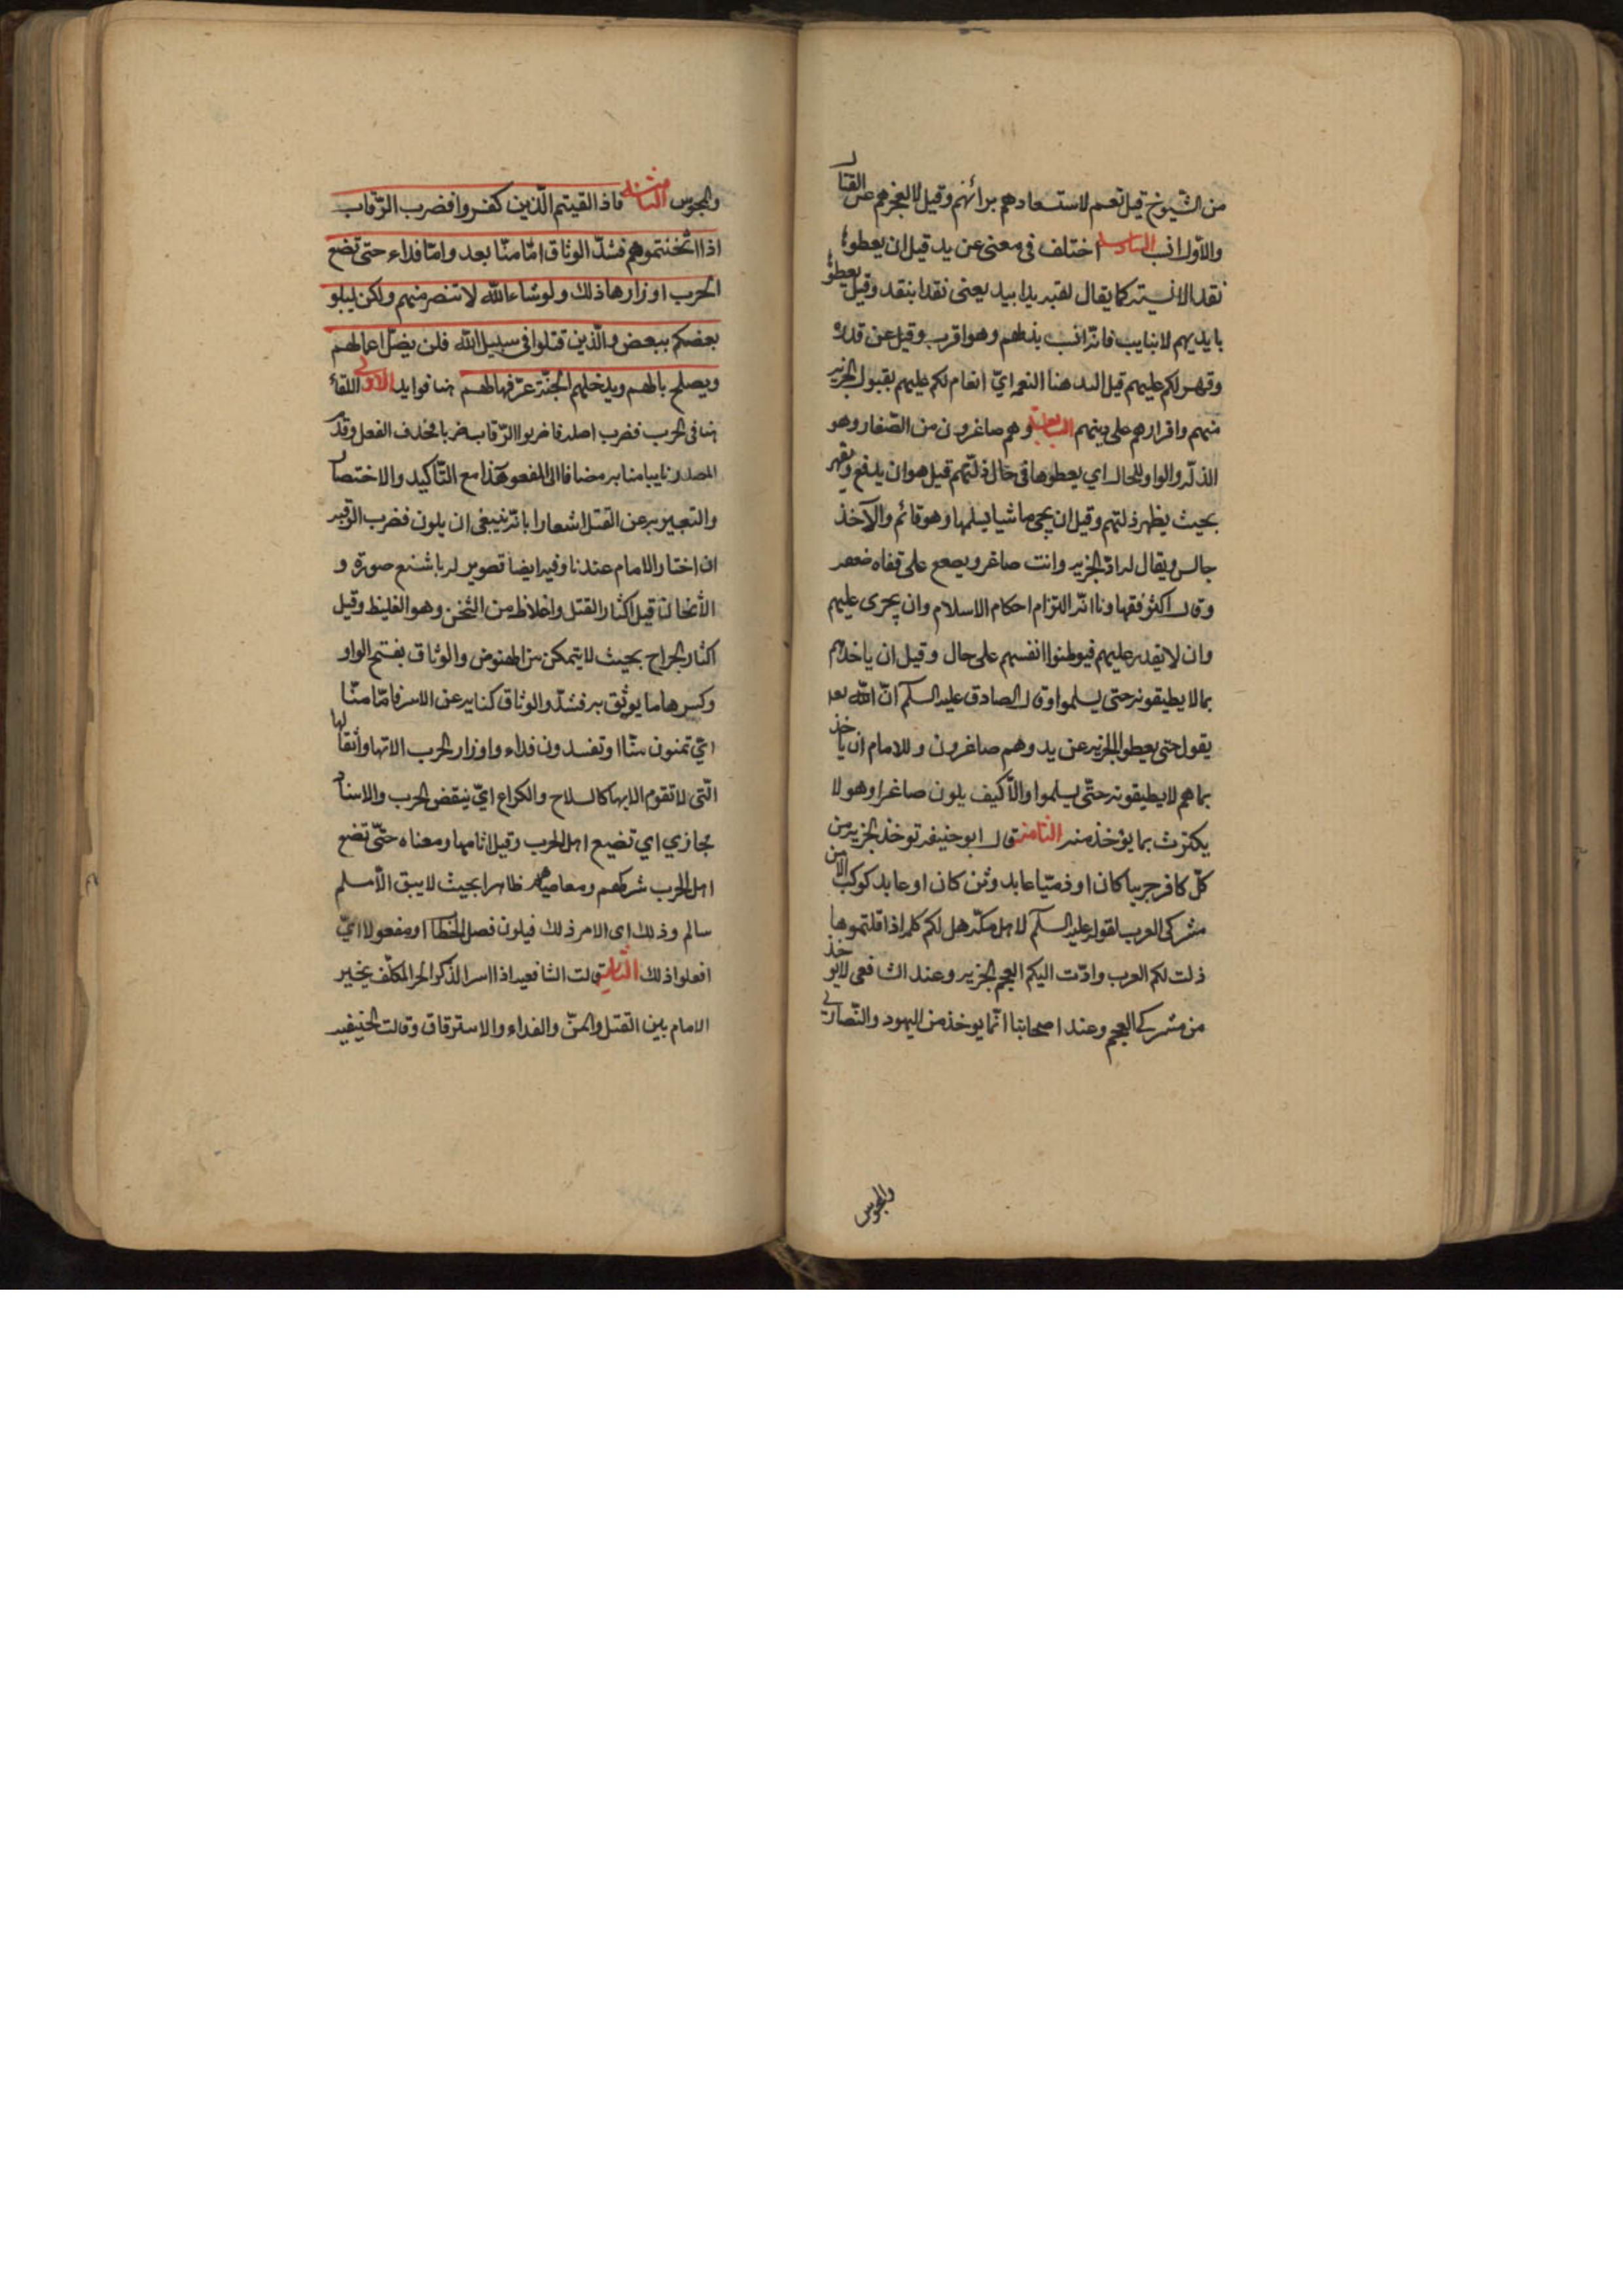 من الشيوخ قيل نعم لاستعادهم برائهم وقيل لا لعجزهم عن القتال
والأول انسب السادسة اختلف في معنى عن يد قيل ان يعطوها
نقدا لا نسيئة كما يقال يدا بيد يعنى نقدا بنقد وقيل يعطوها
بايديهم لا بنايب فانه انسب بذلهم وهو اقرب وقيل عن قدرة
وقهر لكم عليهم قيل اليد هنا النعمة اي انعام لكم عليهم بقبول الجزية
منهم واقرارهم على دينهم السابعة وهم صاغرون من الصغار وهو
الذلة والواو للحال اي يعطوها في حال ذلتهم قيل هو ان يدفع ويقهر
بحيث يظهر ذلتهم وقيل ان يجي ماشيا يسلمها وهو قائم والآخذ
جالس ويقال له اد الجزية وانت صاغر ويصفع على قفاه
وقال اكثر فقهاونا انه التزام احكام الاسلام وان يجرى عليهم
وان لا يقدر عليهم فيوطنوا انفسهم على حال وقيل ان ياخذهم
بما لا يطيقونه حتى يسلموا وقال الصادق عليه السلم ان الله
يقول حتى يعطوا الجزية عن يد وهم صاغرون وللامام ان ياخذ
بما هم لا يطيقونه حتى يسلموا والا كيف يكون صاغرا وهو لا
يكترث بما يؤخذ منه الثامنة قال ابو حنيفة توخذ الجزية من
كل كافر حربيا كان او ذميا عابد وثن كان او عابد كوكب الا من
مشركى العرب لقوله عليه السلم لاهل مكة هل لكم كلمة اذا قلتموها
ذلت لكم العرب وادت اليكم العجم الجزية وعند الشافعى لا يؤخذ
من مشركى العجم وعند اصحابنا انما يوخذ من اليهود والنصارى
والمجوس
والمجوس الثامنة فاذا لقيتم الذين كفروا فضرب الرقاب
اذا اثخنتموهم فشد الوثاق اما منا بعد واما فداء حتى تضع
الحرب اوزارها ذلك ولو شاء الله لا تنصر منهم ولكن ليبلو
بعضكم ببعض والذين قتلوا فى سبيل الله فلن يضل اعمالهم
ويصلح بالهم ويدخلهم الجنة عرفها لهم هنا فوايد الاولى اللقاء
هنا فى الحرب فضرب اصله فاضربوا الرقاب ضربا فحذف الفعل وقدم
المصدر نايبا منابه مضافا الى المفعول هذا مع التأكيد والاختصار
والتعبير به عن القتل اشعارا بانه ينبغى ان يكون فضرب الرقبة
ان اختار الامام عندنا وفيه ايضا تصوير له باشنع صورة و
الأثخان قيل اكثار القتل واغلاظه من الثخن وهو الغليظ وقيل
اكثار الجراح بحيث لا يتمكن من النهوض والوثاق بفتح الواو
وكسرها ما يوثق به فشد والوثاق كناية عن الاسر فاما منا
اي تمنون منا او تفدون فداء واوزار الحرب الاتها وأثقالها
التى لا تقوم الا بها كالسلاح والكراع اي ينقض الحرب والاسناد
مجازي اي تضيع اهل الحرب وقيل اثامها ومعناه حتى تضع
اهل الحرب شركهم ومعاصيهم ظاهرا بحيث لا يبق الا مسلم
سالم وذلك اى الامر ذلك فيكون فصل الخطاب او مفعولا اي
افعلوا ذلك الثانية قالت الشافعية اذا اسر الذكر الحر المكلف يخير
الامام بين القتل والمن والفداء والاسترقاق وقالت الحنيفية